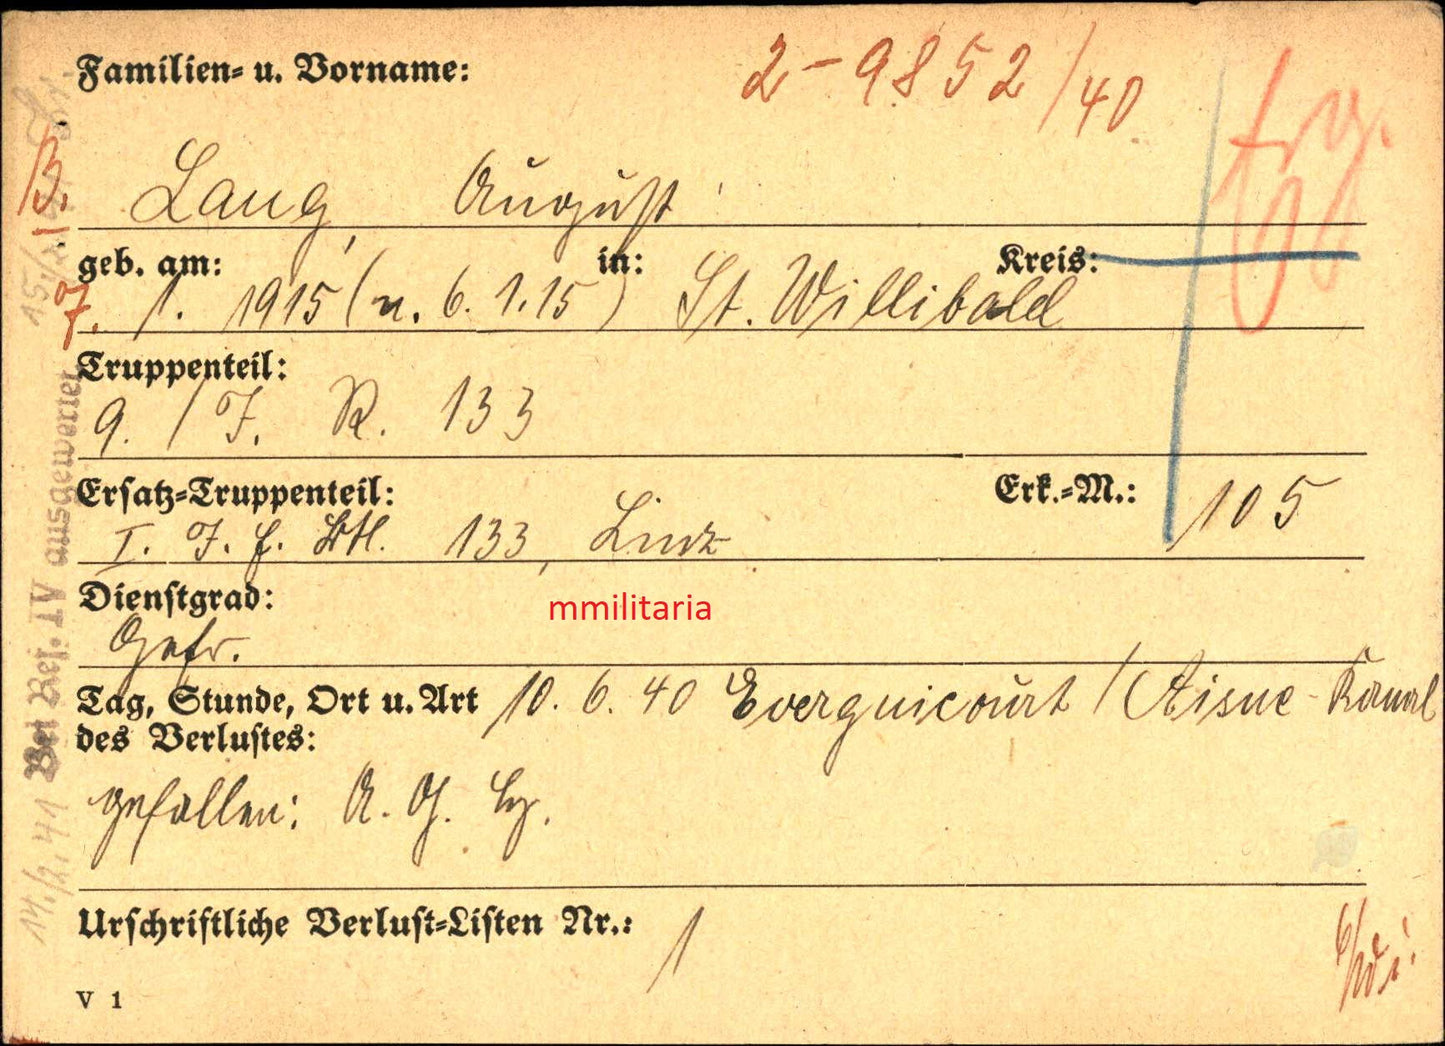 Familien- u. Vorname:
2-9852/40
Lang, August
geb. am: in: Kreis:
7. 1. 1915 (n. 6. 1. 15) St. Willibald
Truppenteil:
9. / J. R. 133
Ersatz-Truppenteil: Erk.-M.: 105
I. J. E. Btl. 133, Linz
Dienstgrad:
Gefr.
mmilitaria
Tag, Stunde, Ort u. Art 10. 6. 40 Everguicourt / Aisne-Kanal
des Verlustes:
gefallen: A. G.
Urschriftliche Verlust-Listen Nr.: 1
V 1
Bei Ref. IV ausgewertet
14./2. 41